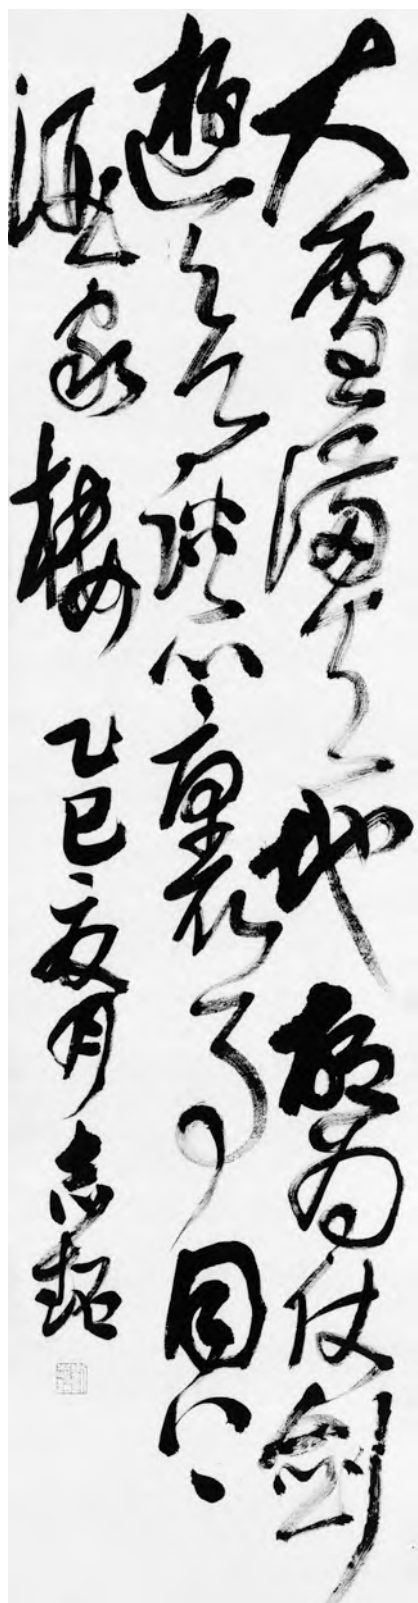 大雪滿天地胡為仗劍
遊欲談心裏事同上
酒家樓 乙巳夏月 志